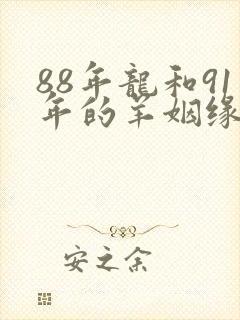 88年龍和91
年的羊姻缘
安之余